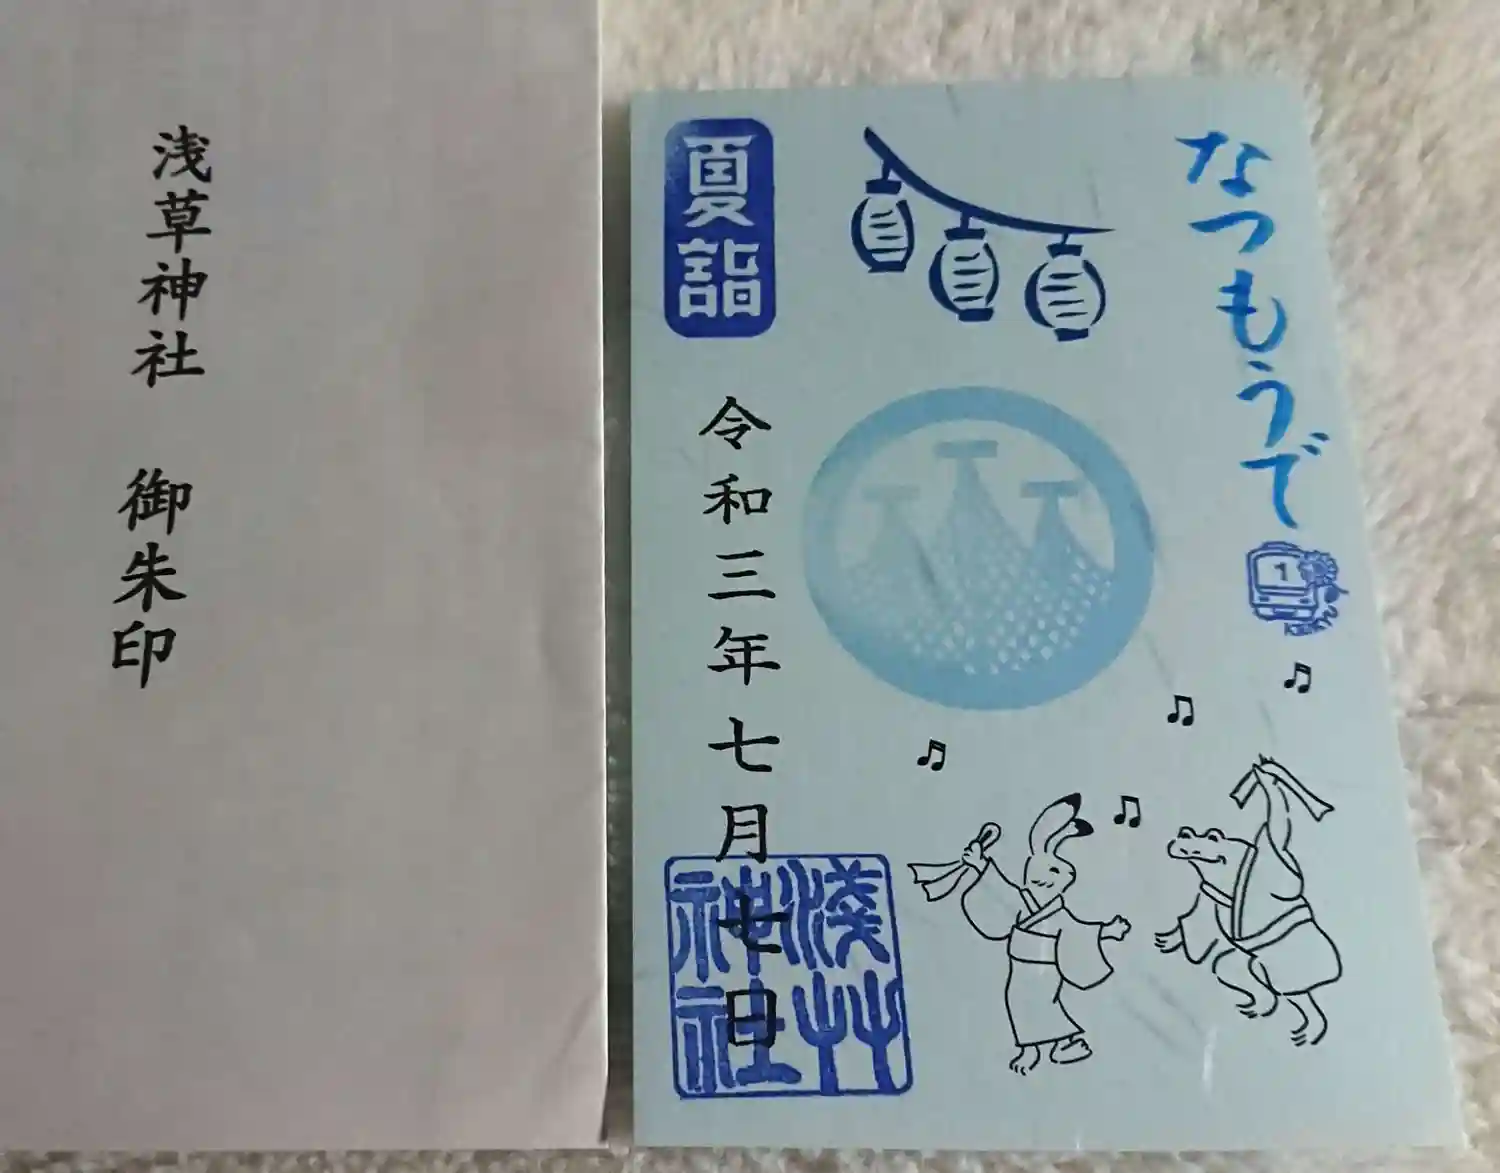 浅草神社 御朱印
なつもうで
1
KEIKYU
夏詣
令和三年七月七日
淺艸神社